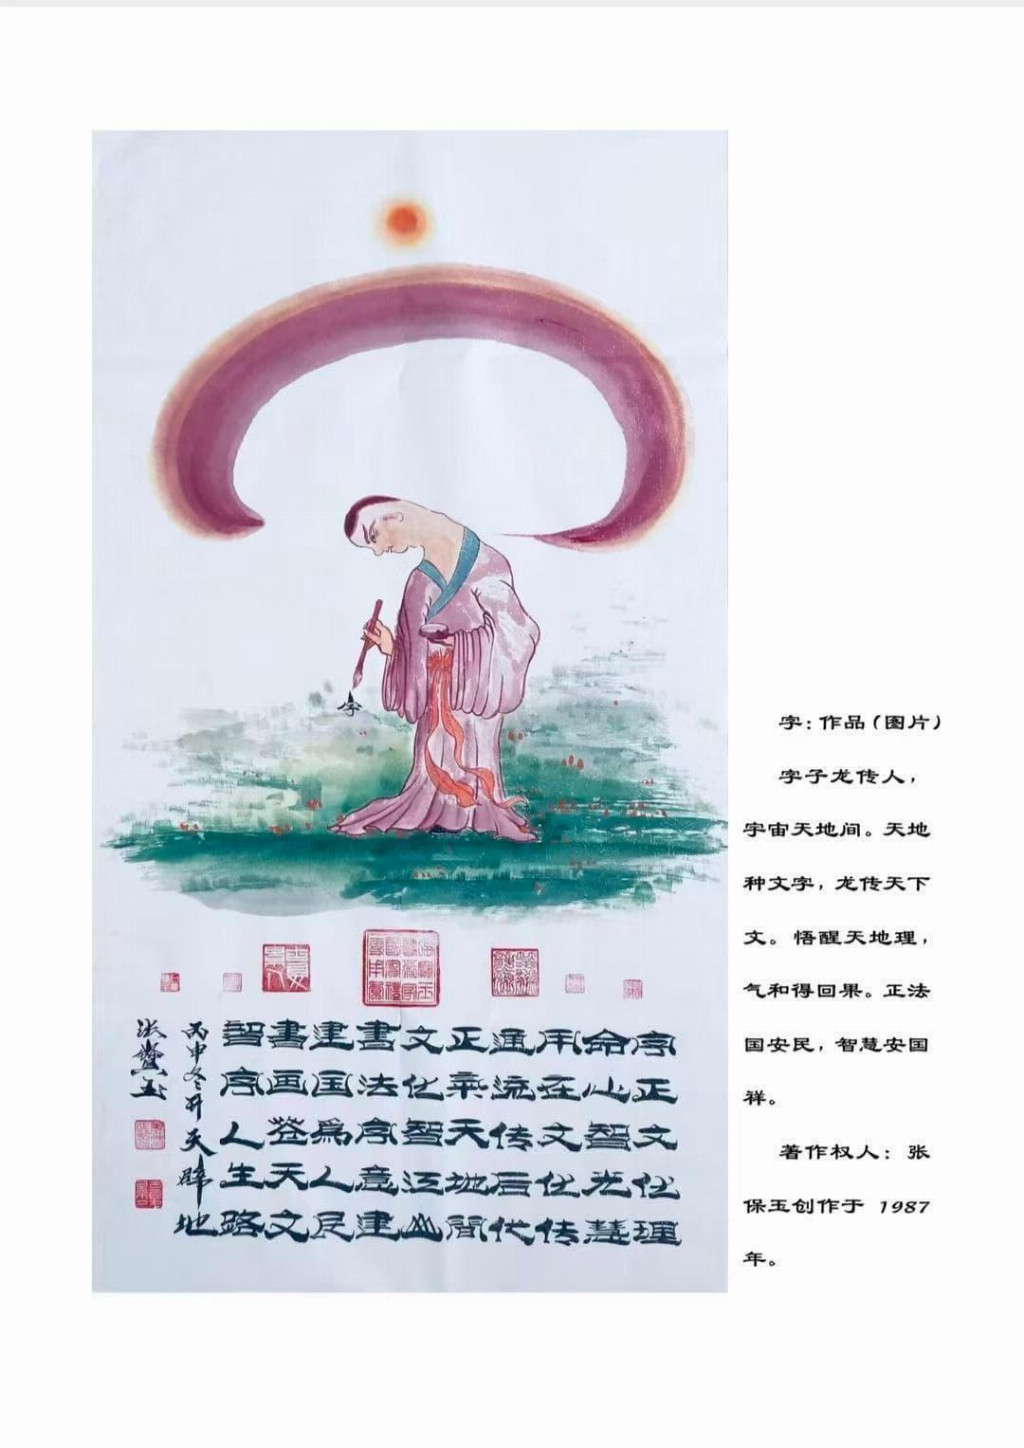 字：作品（图片）
字子龙传人，
宇宙天地间。天地
种文字，龙传天下
文。悟醒天地理，
气和得回果。正法
国安民，智慧安国
祥。
著作权人：张
保玉创作于 1987
年。
字
字正文化理
命心智光慧
用在文化传
通流传后代
正气天地间
文化智江山
书法字意建
建国为人民
书画登天文
智字人生路
丙申冬开天辟地
张
玉